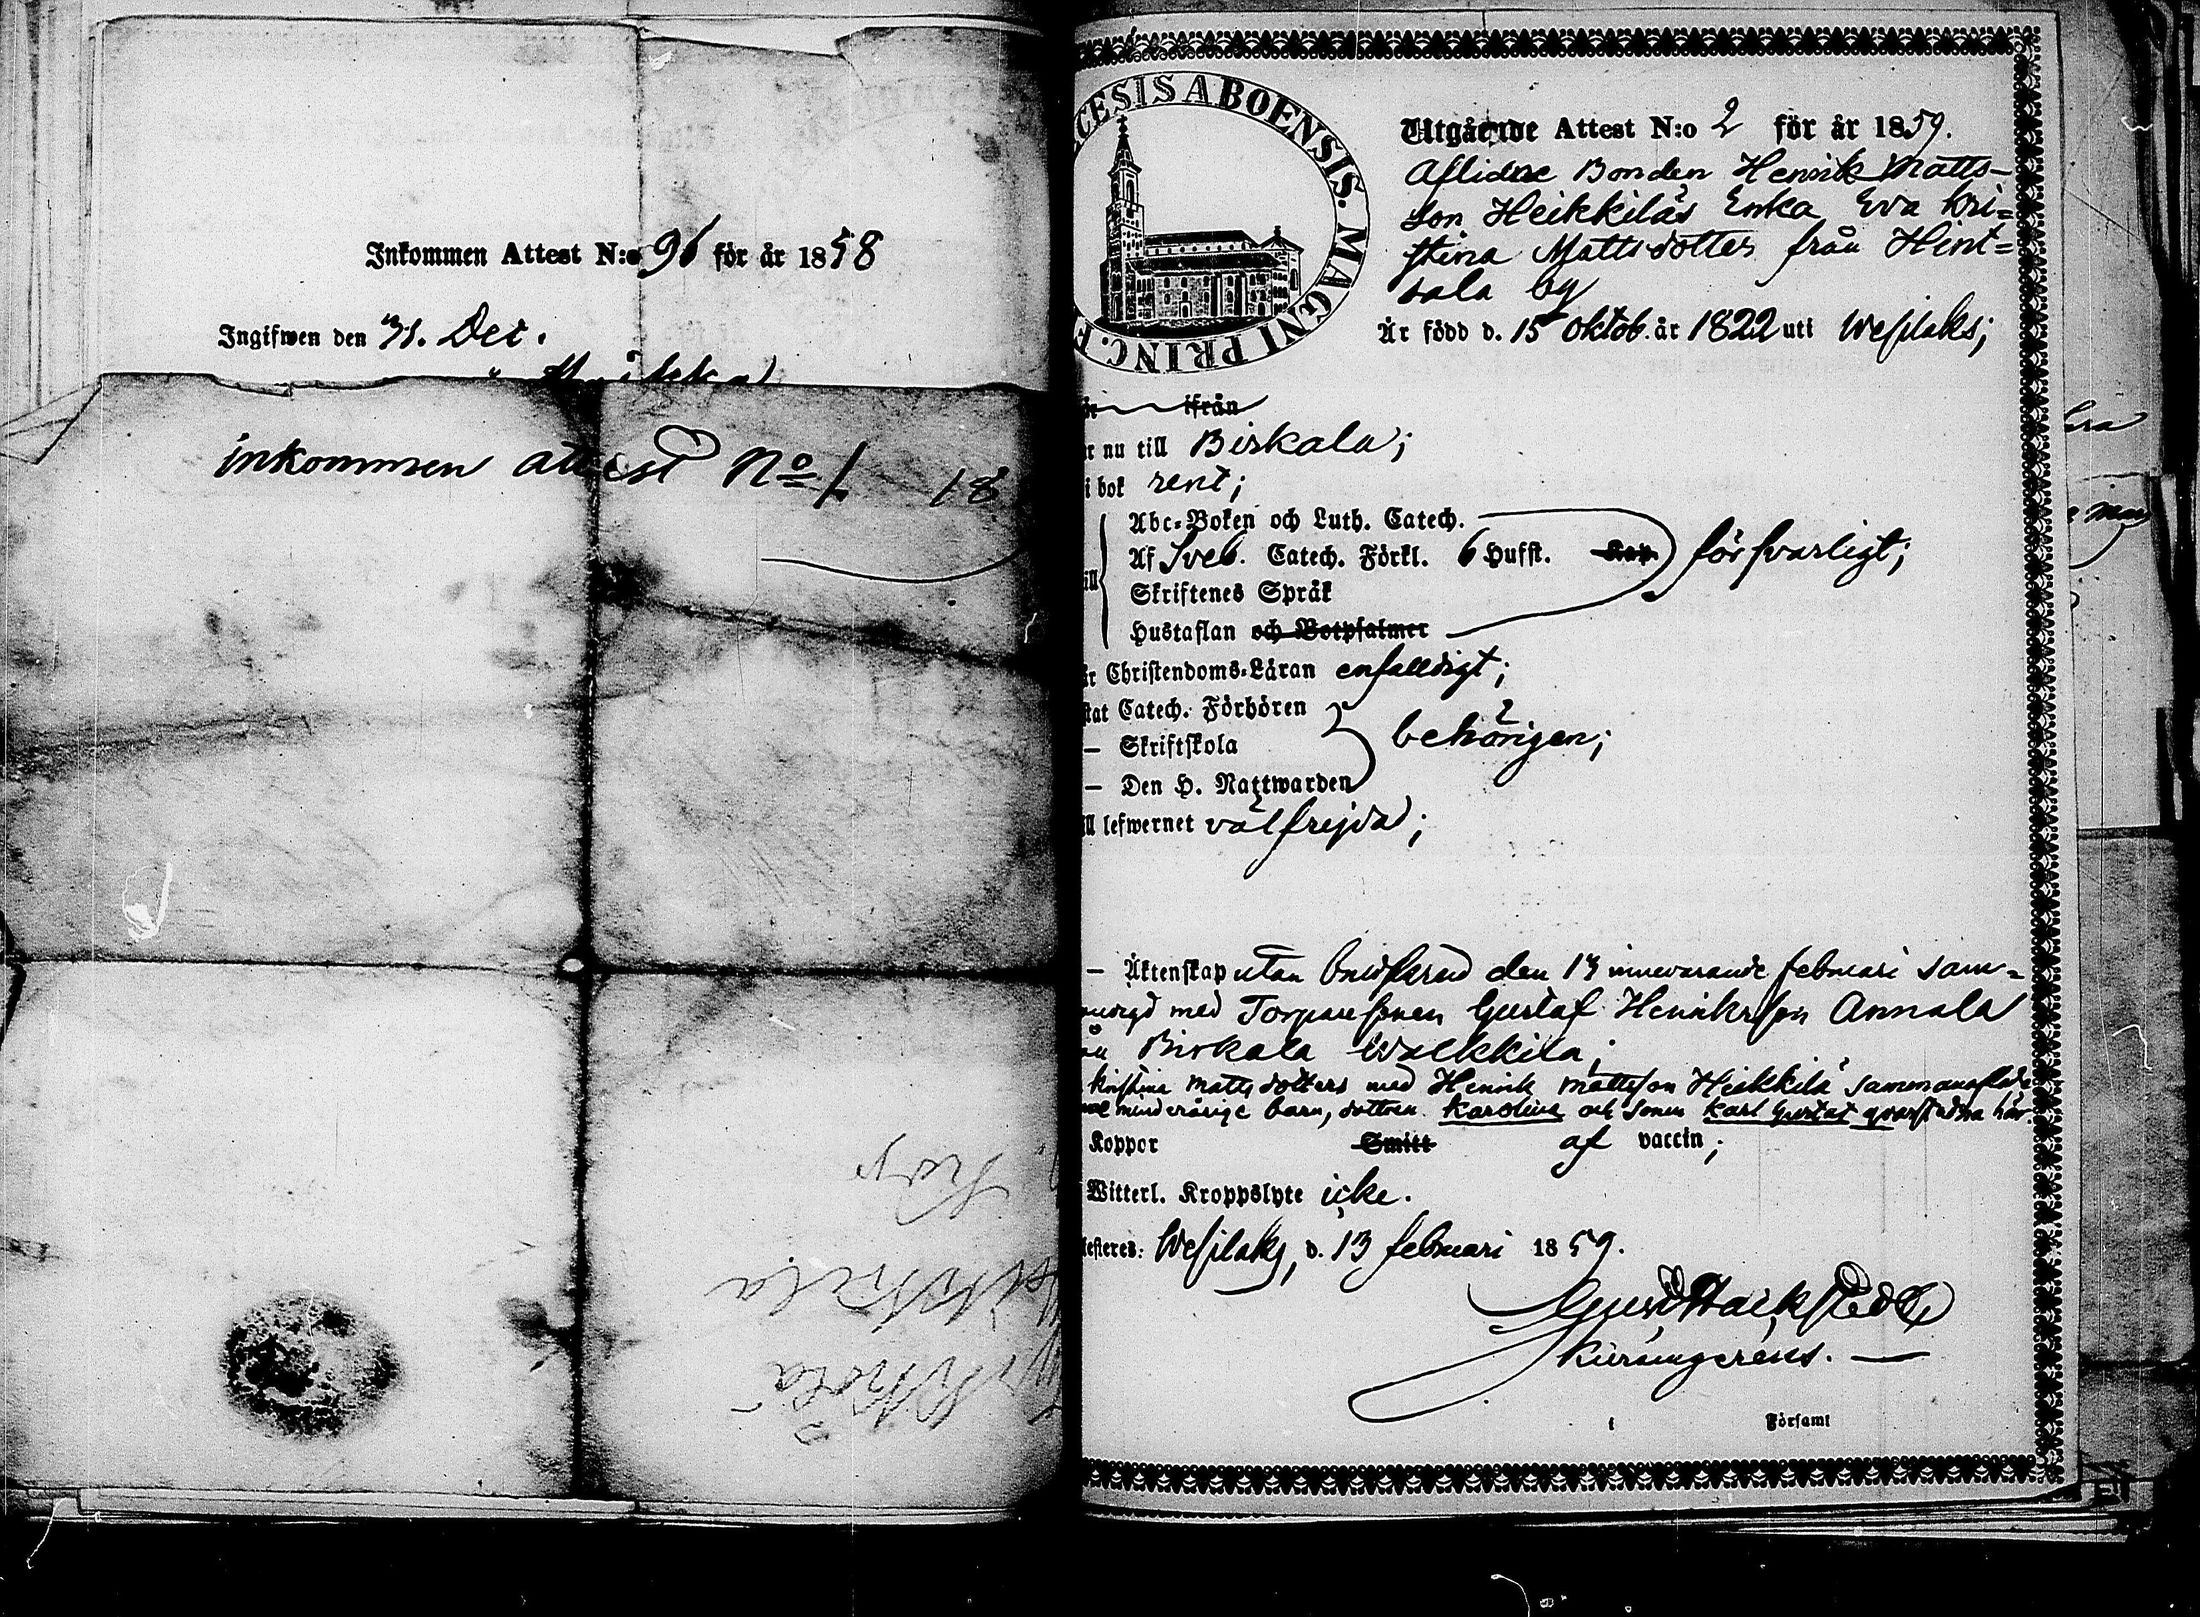 Inkommen Attest N:o 96 för år 1858
Ingifwen den 31. Dec.
inkommen attest No 1 18
CESIS ABOENSIS. MAGNI PRINC. F
Utgående Attest N:o 2 för år 1859.
Aflidne Bonden Henrik Matts-
son Heikkiläs Enka Eva Kri=
stina Mattsdotter från Hint=
sala by
Är född d. 15 Oktob. år 1822 uti Wesilaks;
ifrån
r nu till Birkala;
i bok rent;
Abc-Boken och Luth. Catech.
Af Sveb. Catech. Förkl. 6 Hufst. Kap. försvarligt;
Skriftenes Språk
Hustaflan och Botpsalmer
är Christendoms-Läran enfalldigt;
stat Catech. Förhören
— Skriftskola behörigen;
— Den H. Nattwarden
ill lefwernet välfrejdad;
— Äktenskap utan den 13 innevarande februari sam=
med Torparesonen Gustaf Henriksson Annala
Birkala Walkkila;
Kristina Mattsdotters med Henrik Mattsson Heikkilä sammanaflade
minderårige barn, dottren Karolina och sonen Karl Gustaf qvarstadna här.
Koppor Smitt af vaccin;
Witterl. Kroppslyte icke.
testeres: Wesilaks, d. 13 februari 1859.
Församl